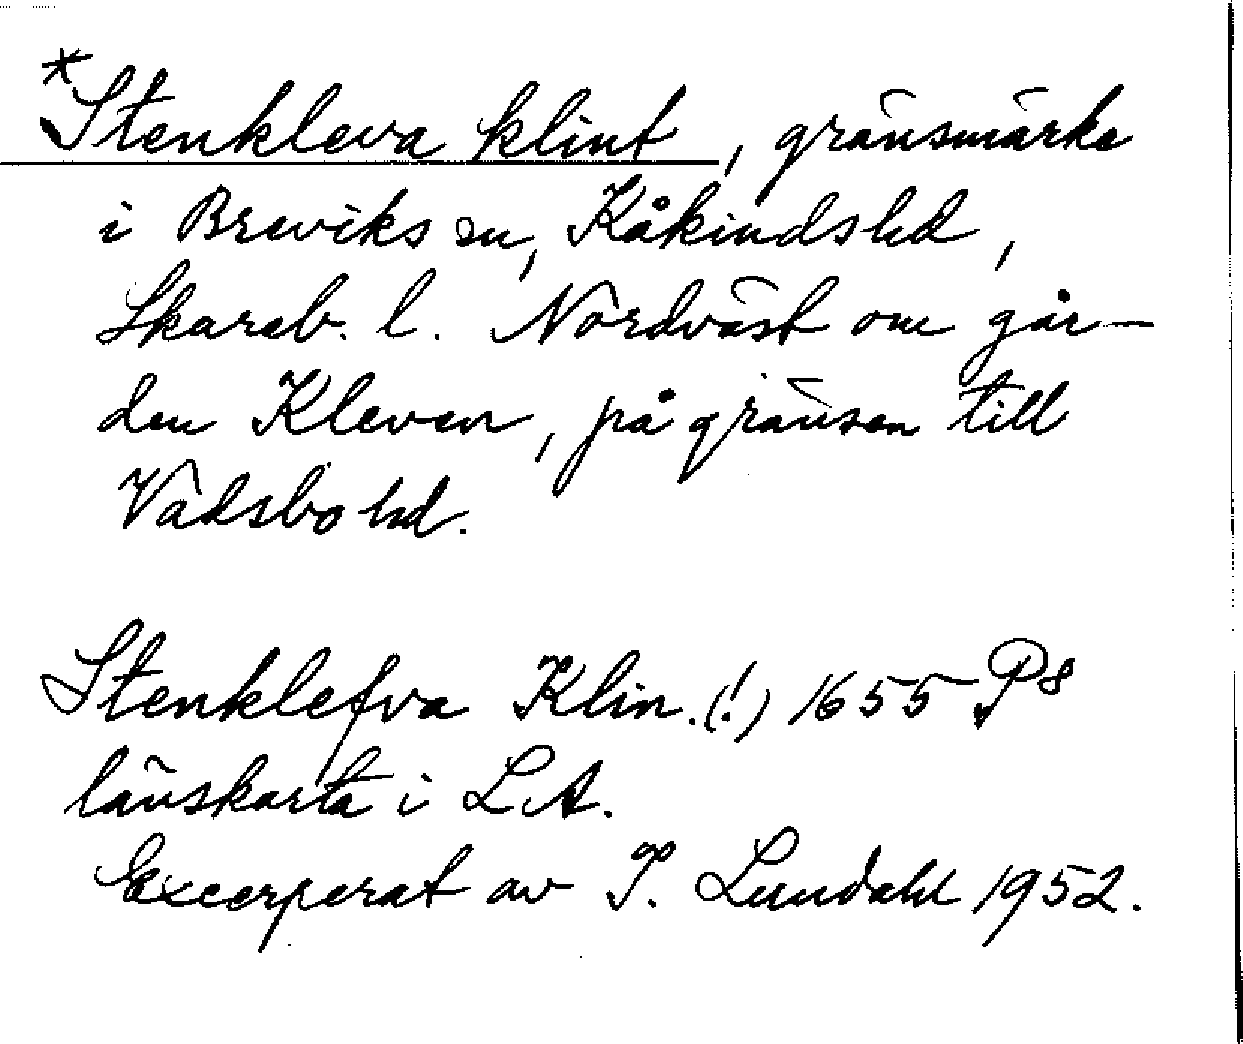 *Stenkleva klint, gränsmärke
i Breviks sn, Kåkinds hd,
Skarab. l. Nordväst om går-
den Kleven, på gränsen till
Vadsbo hd.
Stenklefva Klin.(!) 1655 P8
länskarta i L.A.
Excerperat av I. Lundahl 1952.